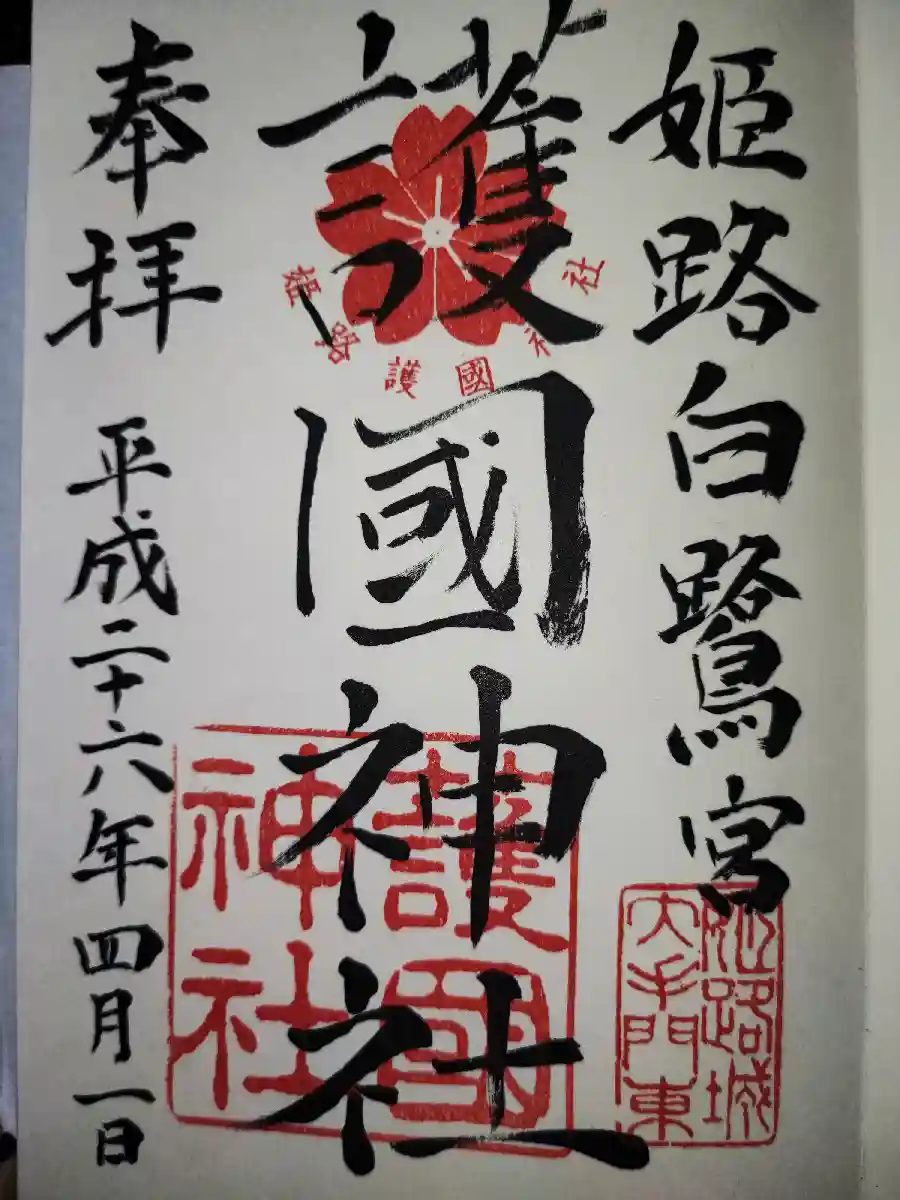 姫路白鷺宮
護國神社
奉拝
平成二十六年四月一日
姫路護國神社
護國
神社
姫路城
大手門東